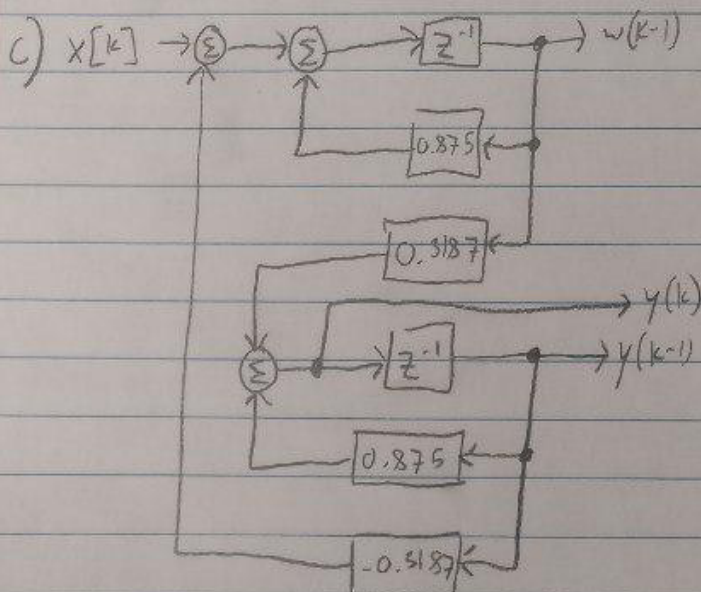 C) x[k] → Σ → Σ → z⁻¹ → w(k-1)
0.875
0.3187
y(k)
Σ → z⁻¹ → y(k-1)
0.875
-0.3187